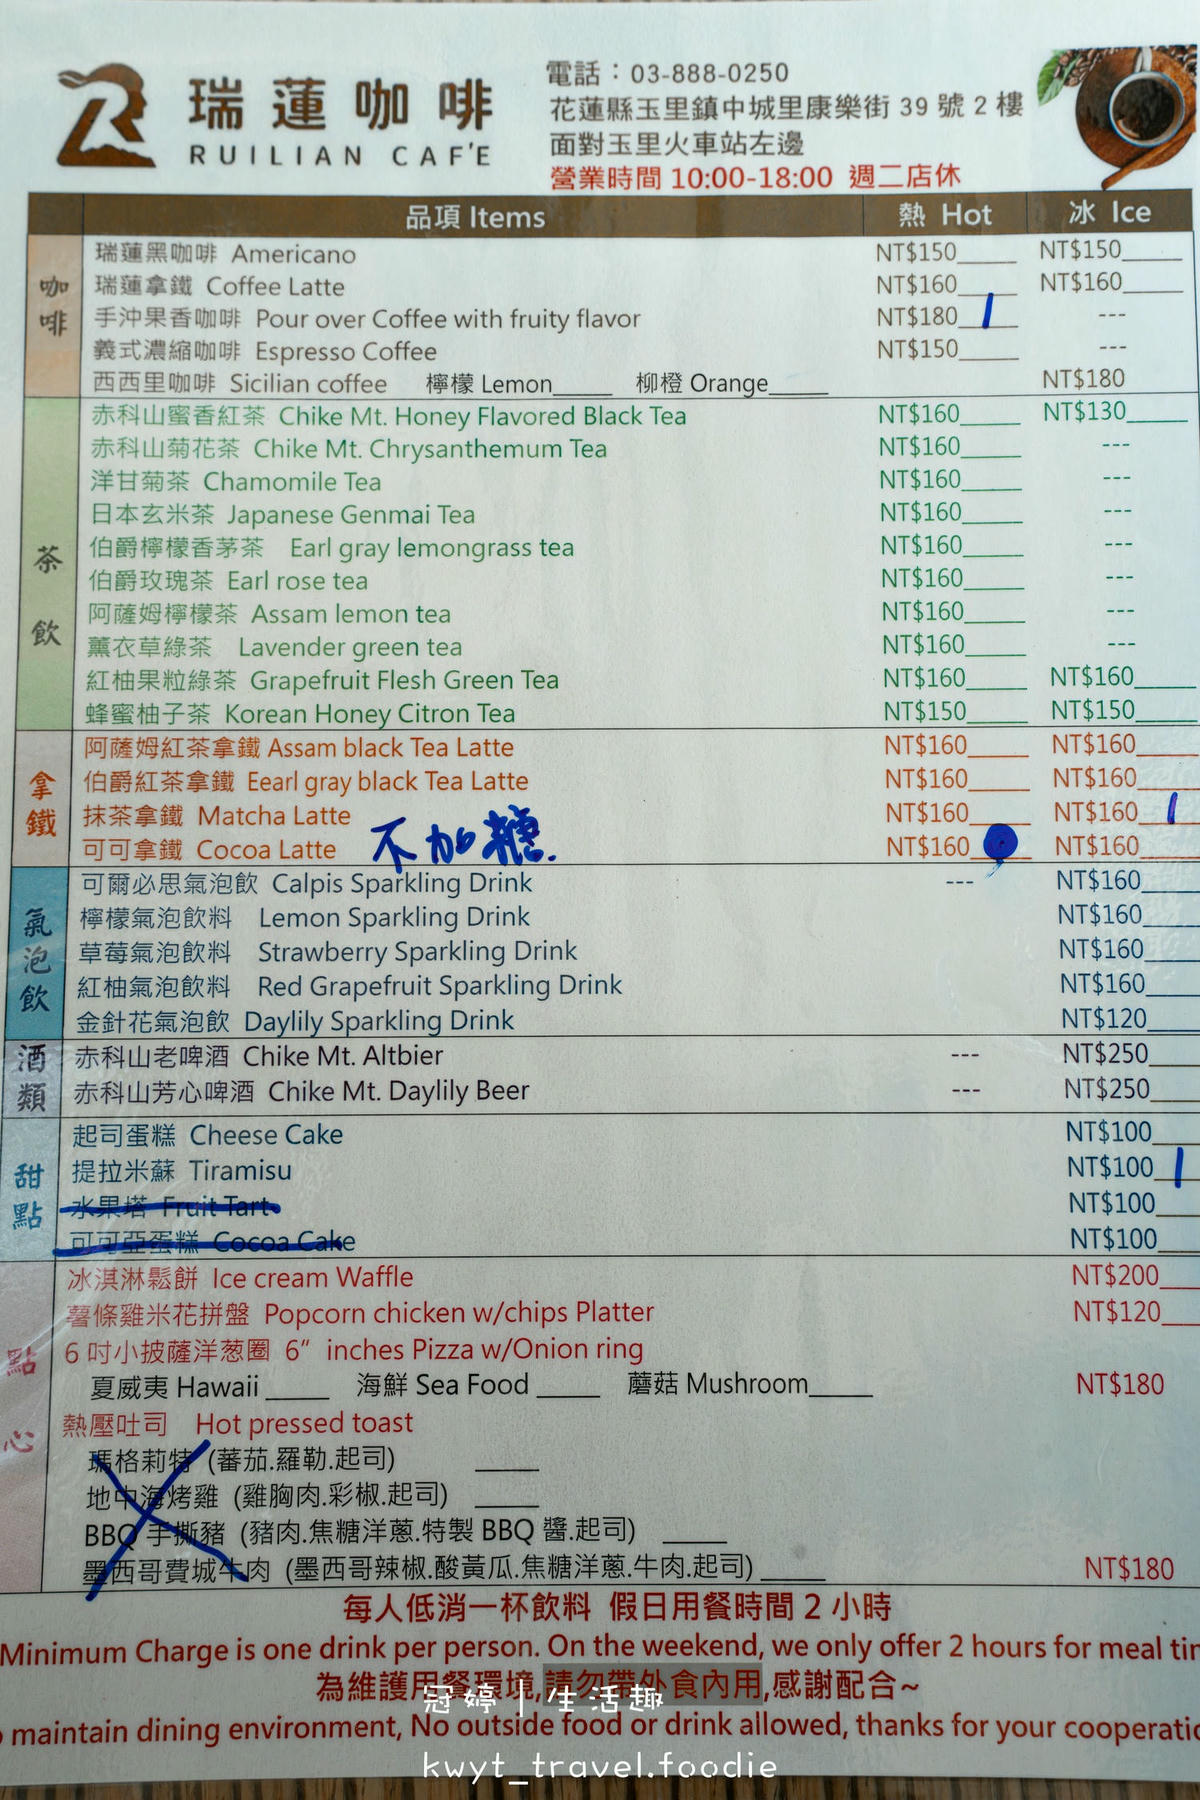 瑞蓮咖啡
RUILIAN CAF'E
電話：03-888-0250
花蓮縣玉里鎮中城里康樂街 39 號 2 樓
面對玉里火車站左邊
營業時間 10:00-18:00 週二店休
品項 Items 熱 Hot 冰 Ice
咖啡
瑞蓮黑咖啡 Americano NT$150____ NT$150____
瑞蓮拿鐵 Coffee Latte NT$160____ NT$160____
手沖果香咖啡 Pour over Coffee with fruity flavor NT$180__1__ ---
義式濃縮咖啡 Espresso Coffee NT$150____ ---
西西里咖啡 Sicilian coffee 檸檬 Lemon____ 柳橙 Orange____ NT$180
茶飲
赤科山蜜香紅茶 Chike Mt. Honey Flavored Black Tea NT$160____ NT$130____
赤科山菊花茶 Chike Mt. Chrysanthemum Tea NT$160____ ---
洋甘菊茶 Chamomile Tea NT$160____ ---
日本玄米茶 Japanese Genmai Tea NT$160____ ---
伯爵檸檬香茅茶 Earl gray lemongrass tea NT$160____ ---
伯爵玫瑰茶 Earl rose tea NT$160____ ---
阿薩姆檸檬茶 Assam lemon tea NT$160____ ---
薰衣草綠茶 Lavender green tea NT$160____ ---
紅柚果粒綠茶 Grapefruit Flesh Green Tea NT$160____ NT$160____
蜂蜜柚子茶 Korean Honey Citron Tea NT$150____ NT$150____
拿鐵
阿薩姆紅茶拿鐵 Assam black Tea Latte NT$160____ NT$160____
伯爵紅茶拿鐵 Eearl gray black Tea Latte NT$160____ NT$160____
抹茶拿鐵 Matcha Latte NT$160____ NT$160__1
不加糖.
可可拿鐵 Cocoa Latte NT$160____ NT$160____
氣泡飲
可爾必思氣泡飲 Calpis Sparkling Drink --- NT$160____
檸檬氣泡飲料 Lemon Sparkling Drink NT$160____
草莓氣泡飲料 Strawberry Sparkling Drink NT$160____
紅柚氣泡飲料 Red Grapefruit Sparkling Drink NT$160____
金針花氣泡飲 Daylily Sparkling Drink NT$120____
酒類
赤科山老啤酒 Chike Mt. Altbier --- NT$250____
赤科山芳心啤酒 Chike Mt. Daylily Beer --- NT$250____
甜點
起司蛋糕 Cheese Cake NT$100____
提拉米蘇 Tiramisu NT$100__1
水果塔 Fruit Tart NT$100____
可可亞蛋糕 Cocoa Cake NT$100____
點心
冰淇淋鬆餅 Ice cream Waffle NT$200____
薯條雞米花拼盤 Popcorn chicken w/chips Platter NT$120____
6 吋小披薩洋葱圈 6” inches Pizza w/Onion ring
夏威夷 Hawaii ____ 海鮮 Sea Food ____ 蘑菇 Mushroom____ NT$180
熱壓吐司 Hot pressed toast
瑪格莉特 (蕃茄.羅勒.起司) ____
地中海烤雞 (雞胸肉.彩椒.起司) ____
BBQ 手撕豬 (豬肉.焦糖洋蔥.特製 BBQ 醬.起司) ____
墨西哥費城牛肉 (墨西哥辣椒.酸黃瓜.焦糖洋蔥.牛肉.起司) ____ NT$180
每人低消一杯飲料 假日用餐時間 2 小時
Minimum Charge is one drink per person. On the weekend, we only offer 2 hours for meal tim
為維護用餐環境,請勿帶外食內用,感謝配合~
o maintain dining environment, No outside food or drink allowed, thanks for your cooperatio
冠婷 | 生活趣
kwyt_travel.foodie